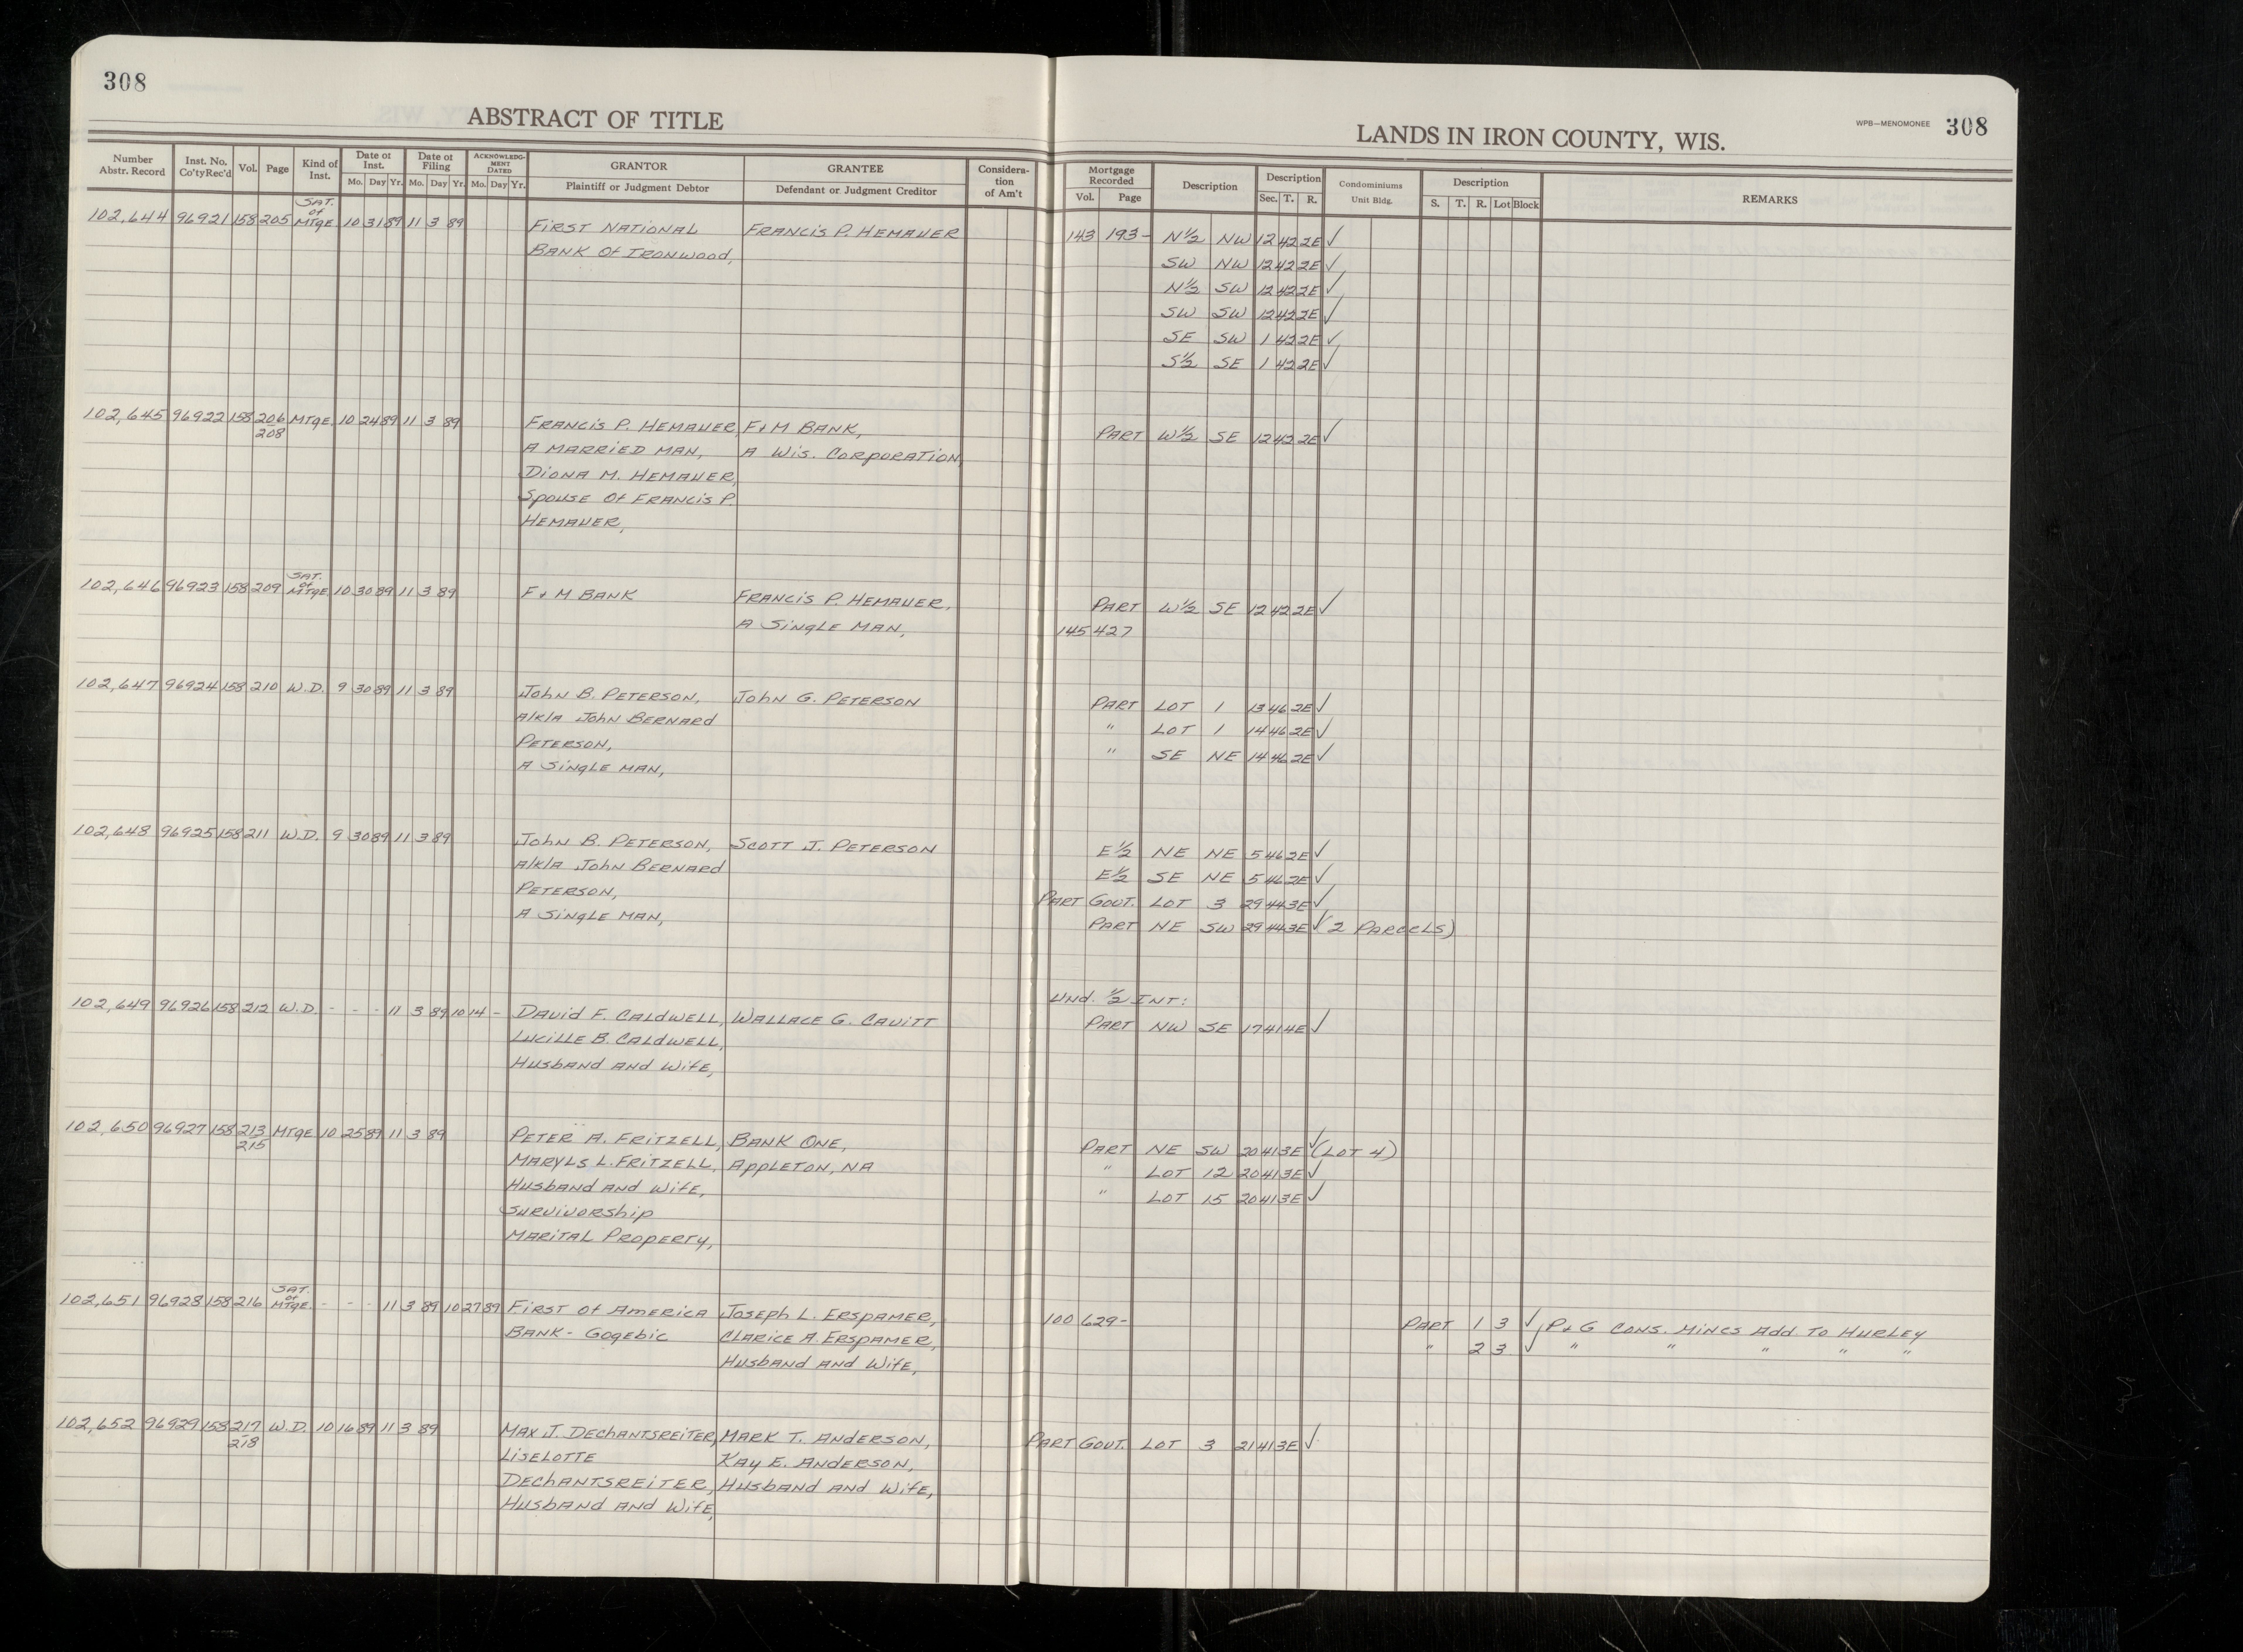 308
ABSTRACT OF TITLE
LANDS IN IRON COUNTY, WIS.
WPB—MENOMONEE 308
Number Abstr. Record Inst. No. Co'ty Rec'd Vol. Page Kind of Inst. Date of Inst. Mo. Day Yr. Date of Filing Mo. Day Yr. ACKNOWLEDGMENT DATED Mo. Day Yr. GRANTOR Plaintiff or Judgment Debtor GRANTEE Defendant or Judgment Creditor Consideration of Am't Mortgage Recorded Vol. Page Description Description Sec. T. R. Condominiums Unit Bldg. Description S. T. R. Lot Block REMARKS
102,644 96921 158 205 SAT. of MTGE 10 31 89 11 3 89 FIRST NATIONAL FRANCIS P. HEMAUER 143 193- N½ NW 12 42 2E ✓
BANK OF IRONWOOD, SW NW 12 42 2E ✓
N½ SW 12 42 2E ✓
SW SW 12 42 2E ✓
SE SW 1 42 2E ✓
S½ SE 1 42 2E ✓
102,645 96922 158 206 MTGE. 10 24 89 11 3 89 FRANCIS P. HEMAUER, F&M BANK, PART W½ SE 12 42 2E ✓
208 A MARRIED MAN, A WIS. CORPORATION,
DIONA M. HEMAUER,
SPOUSE OF FRANCIS P.
HEMAUER,
102,646 96923 158 209 SAT. of MTGE 10 30 89 11 3 89 F & M BANK FRANCIS P. HEMAUER, PART W½ SE 12 42 2E ✓
A SINGLE MAN, 145 427
102,647 96924 158 210 W.D. 9 30 89 11 3 89 JOHN B. PETERSON, JOHN G. PETERSON PART LOT 1 13 46 2E ✓
A/K/A JOHN BERNARD " LOT 1 14 46 2E ✓
PETERSON, " SE NE 14 46 2E ✓
A SINGLE MAN,
102,648 96925 158 211 W.D. 9 30 89 11 3 89 JOHN B. PETERSON, SCOTT J. PETERSON E½ NE NE 5 46 2E ✓
A/K/A JOHN BERNARD E½ SE NE 5 46 2E ✓
PETERSON, PART GOVT. LOT 3 29 44 3E ✓
A SINGLE MAN, PART NE SW 29 44 3E ✓ (2 PARCELS)
102,649 96926 158 212 W.D. - - - 11 3 89 10 14 - DAVID F. CALDWELL, WALLACE G. CAVITT UND. ½ INT:
LUCILLE B. CALDWELL, PART NW SE 17 41 4E ✓
HUSBAND AND WIFE,
102,650 96927 158 213 MTGE 10 25 89 11 3 89 PETER A. FRITZELL, BANK ONE, PART NE SW 20 41 3E ✓ (LOT 4)
215 MARYLS L. FRITZELL, APPLETON, NA " LOT 12 20 41 3E ✓
HUSBAND AND WIFE, " LOT 15 20 41 3E ✓
SURVIVORSHIP
MARITAL PROPERTY,
102,651 96928 158 216 SAT. of MTGE. - - - 11 3 89 10 27 89 FIRST OF AMERICA JOSEPH L. ERSPAMER, 100 629- PART 1 3 ✓ P & G CONS. MINES ADD. TO HURLEY
BANK - GOGEBIC CLARICE A. ERSPAMER, " 2 3 ✓ " " " " "
HUSBAND AND WIFE,
102,652 96929 158 217 W.D. 10 16 89 11 3 89 MAX J. DECHANTSREITER, MARK T. ANDERSON, PART GOVT. LOT 3 21 41 3E ✓
218 LISELOTTE KAY E. ANDERSON,
DECHANTSREITER, HUSBAND AND WIFE,
HUSBAND AND WIFE,